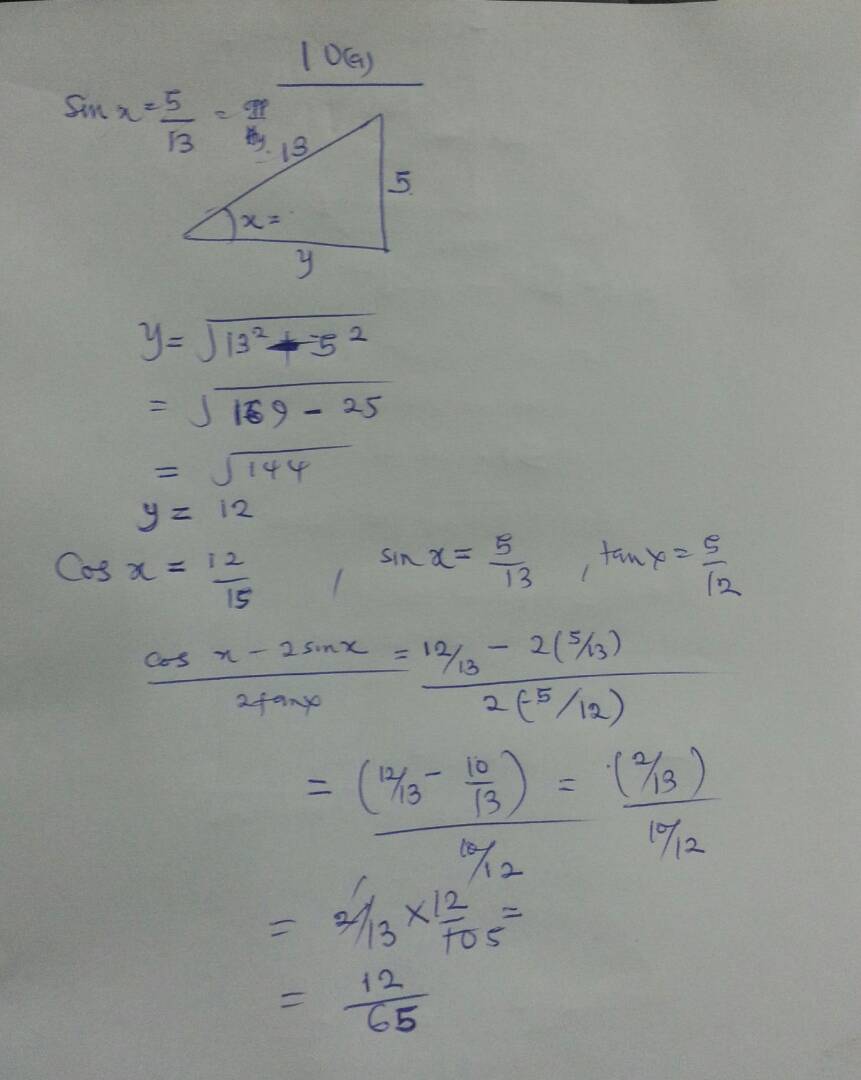 10(a)
Sin x = 5/13 =
13
5
x =
y
y = √13² - 5²
= √169 - 25
= √144
y = 12
Cos x = 12/15 , sin x = 5/13 , tan x = 5/12
cos x - 2 sin x / 2 tan x = 12/13 - 2(5/13) / 2(5/12)
= (12/13 - 10/13) / 10/12 = (2/13) / 10/12
= 2/13 × 12/10 5 =
= 12/65